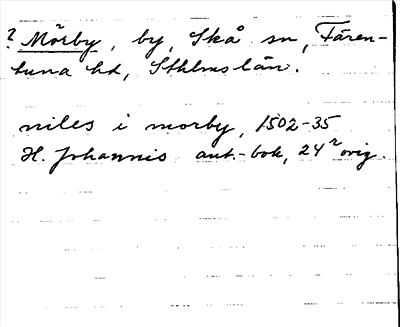 ? Mörby, by, Skå sn, Fären-
tuna hd, Sthlms län.
niles i morby, 1502-35
H. Johannis ant.-bok, 24² orig.